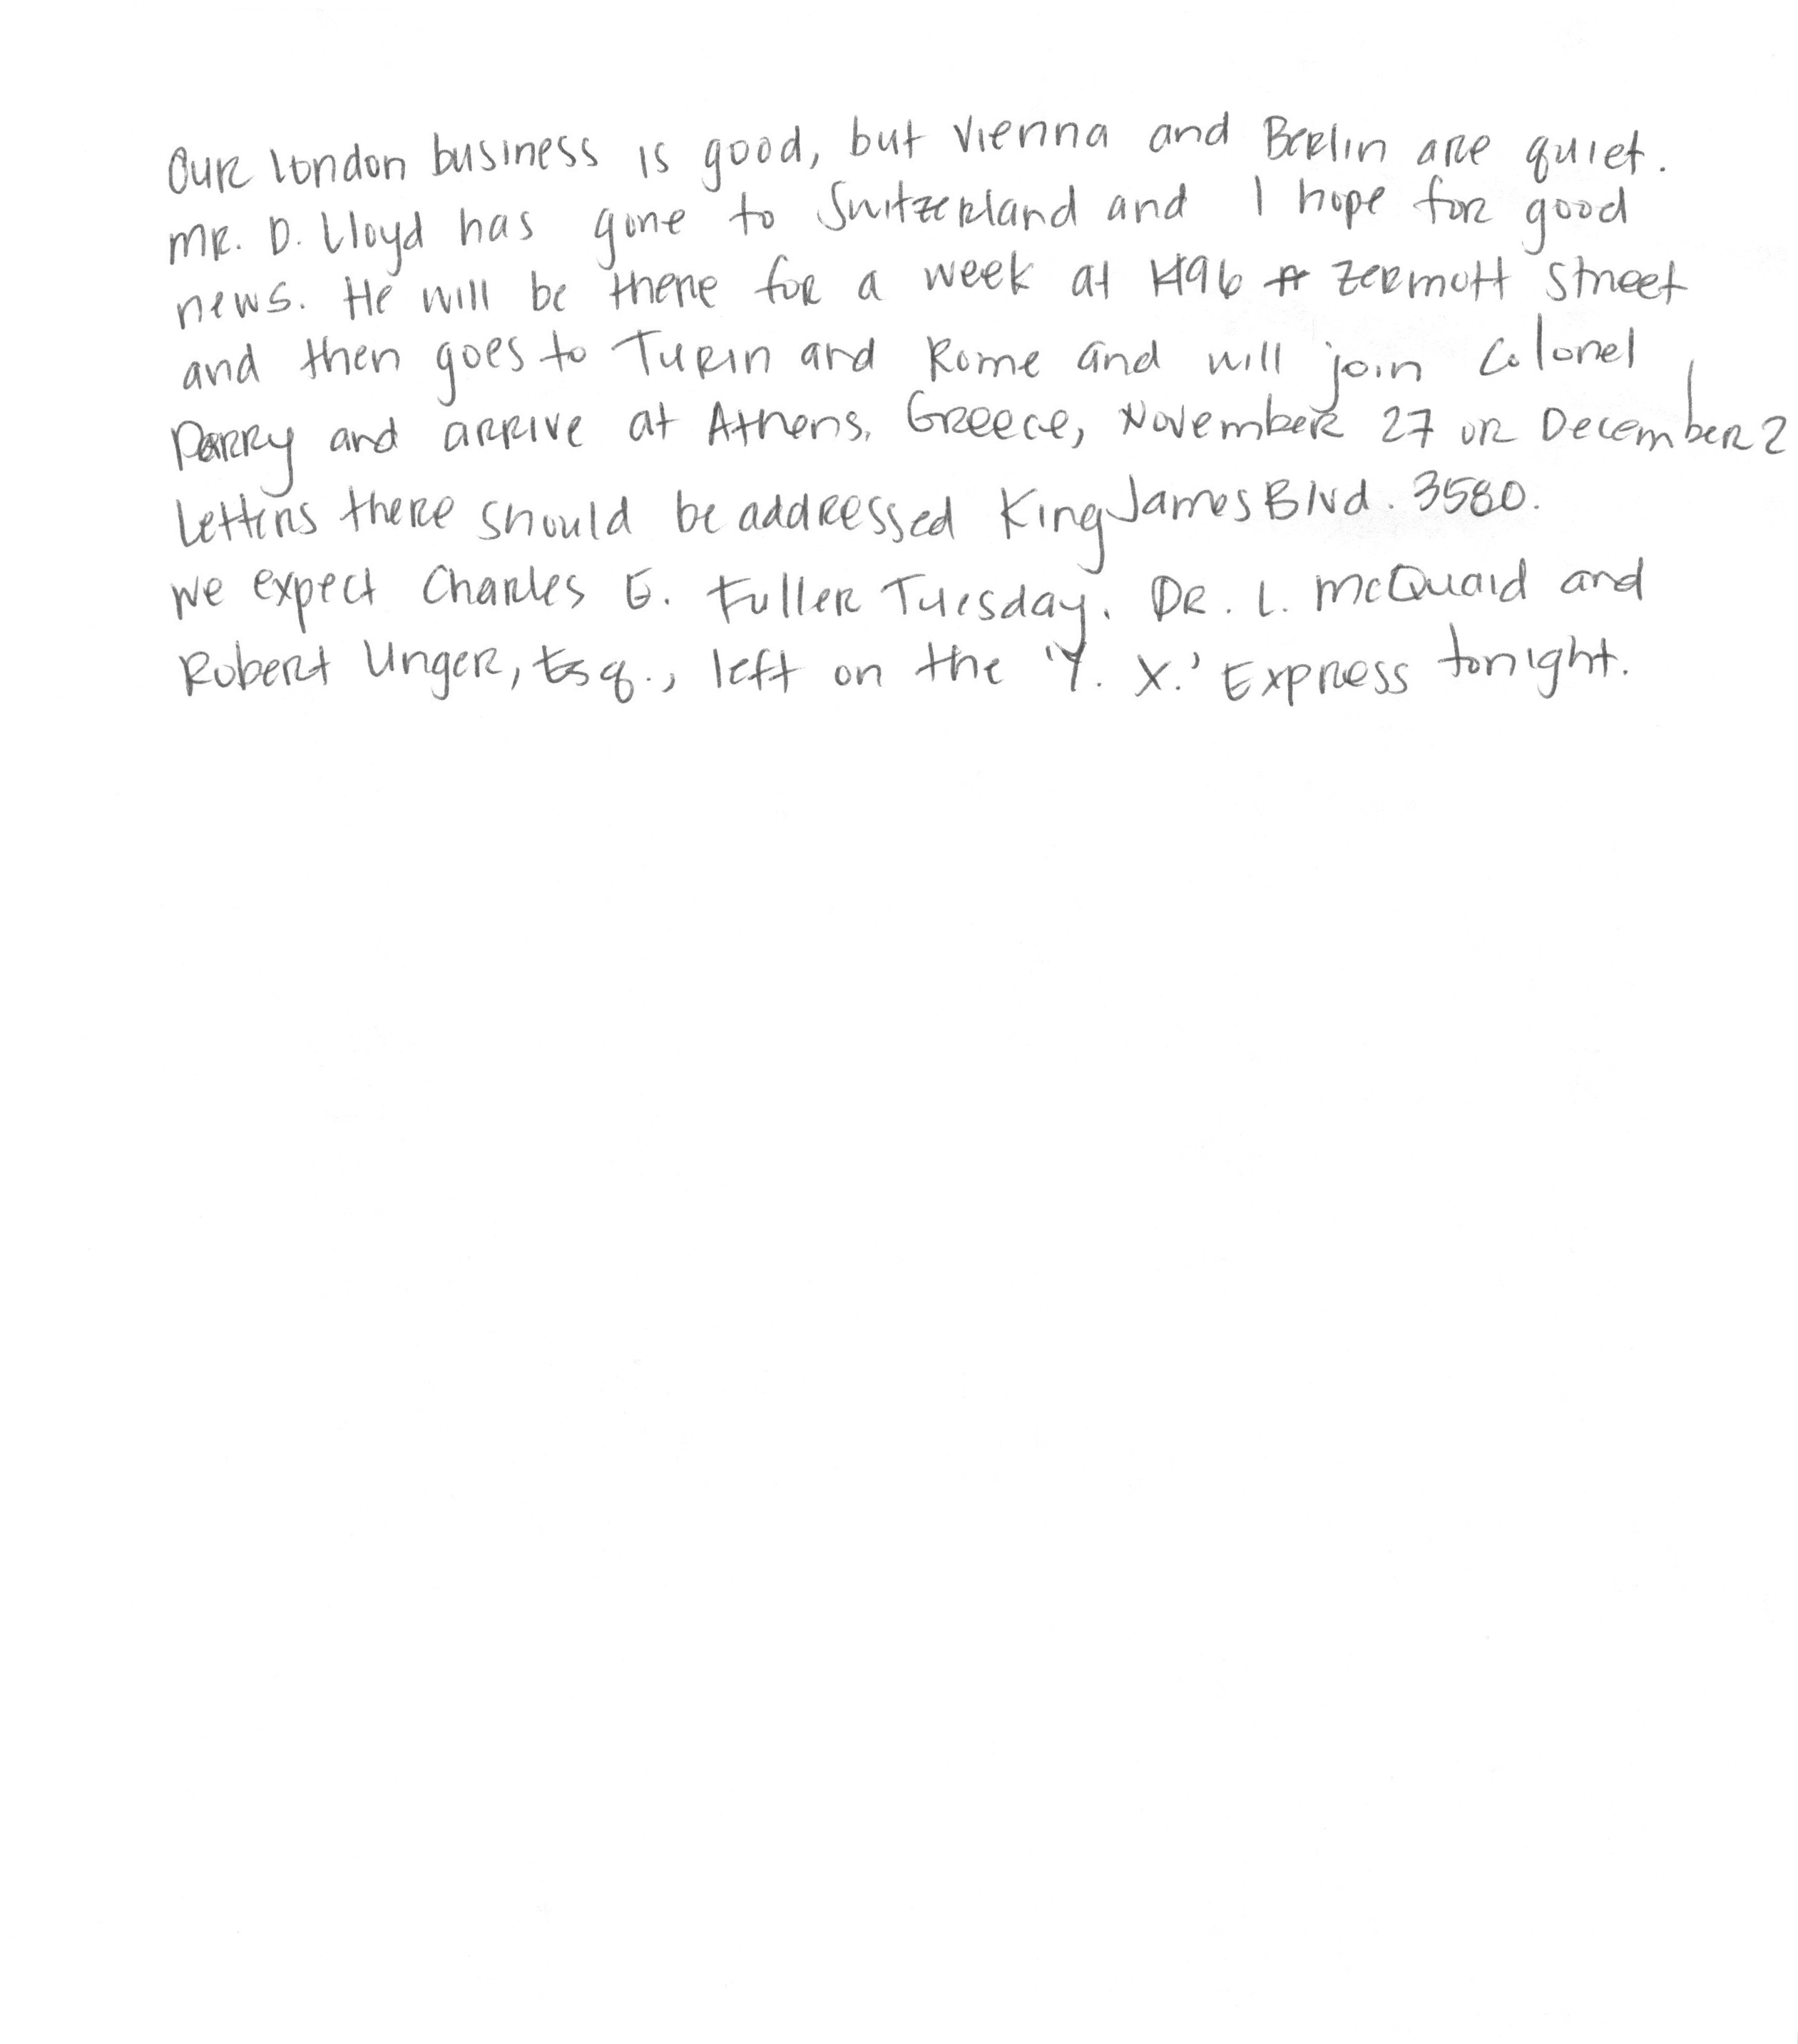 Our London business is good, but Vienna and Berlin are quiet.
Mr. D. Lloyd has gone to Switzerland and I hope for good
news. He will be there for a week at 1496 Zermott Street
and then goes to Turin and Rome and will join Colonel
Parry and arrive at Athens, Greece, November 27 or December 2
Letters there should be addressed King James Blvd. 3580.
We expect Charles E. Fuller Tuesday. Dr. L. McQuaid and
Robert Unger, Esq., left on the 'Y. X.' Express tonight.